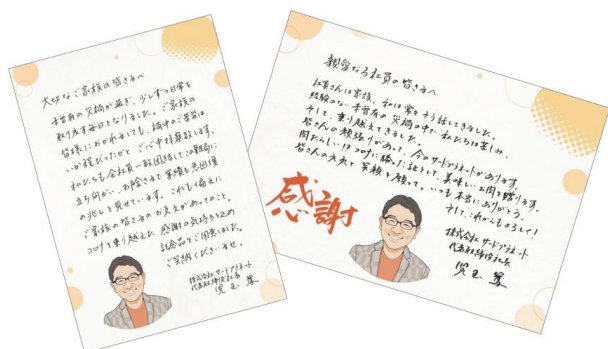 大切なご家族の皆さまへ
未曽有の災禍が過ぎ、少しずつ日常を
取り戻す毎日となりました。ご家族の
皆様におかれましても、禍中のご苦労は
いか程だったかと ご心中お察しします。
私たちも全社員一致団結してこの難局に
立ち向かい、お陰さまで業績も急回復
の兆しを見せています。これも偏えに
ご家族の皆さまのお支えがあってのこと。
コロナを乗り越えた、感謝の気持ちを込め
記念品をご用意しました。
ご笑納くださいませ。
株式会社 サードプラネット
代表取締役社長
児玉
親愛なる社員の皆さまへ
社員さんは家族、私は常々そう話してきました。
経験のない未曽有の災禍の中、私たちは苦しみ、
そして、乗り越えてきました。
皆さんの頑張りがあって、今のサードプラネットがあります。
肉たらしい!?コロナに勝った証として、美味しいお肉を贈ります。
皆さんの元気と笑顔を願って。いつも本当にありがとう。
そして、これからもよろしく!
感謝
株式会社 サードプラネット
代表取締役社長
児玉